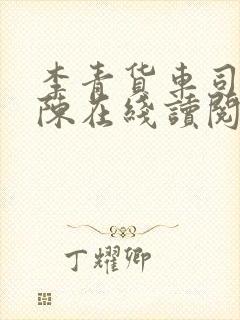 李青货車司
陳在綫讀閱
丁耀卿